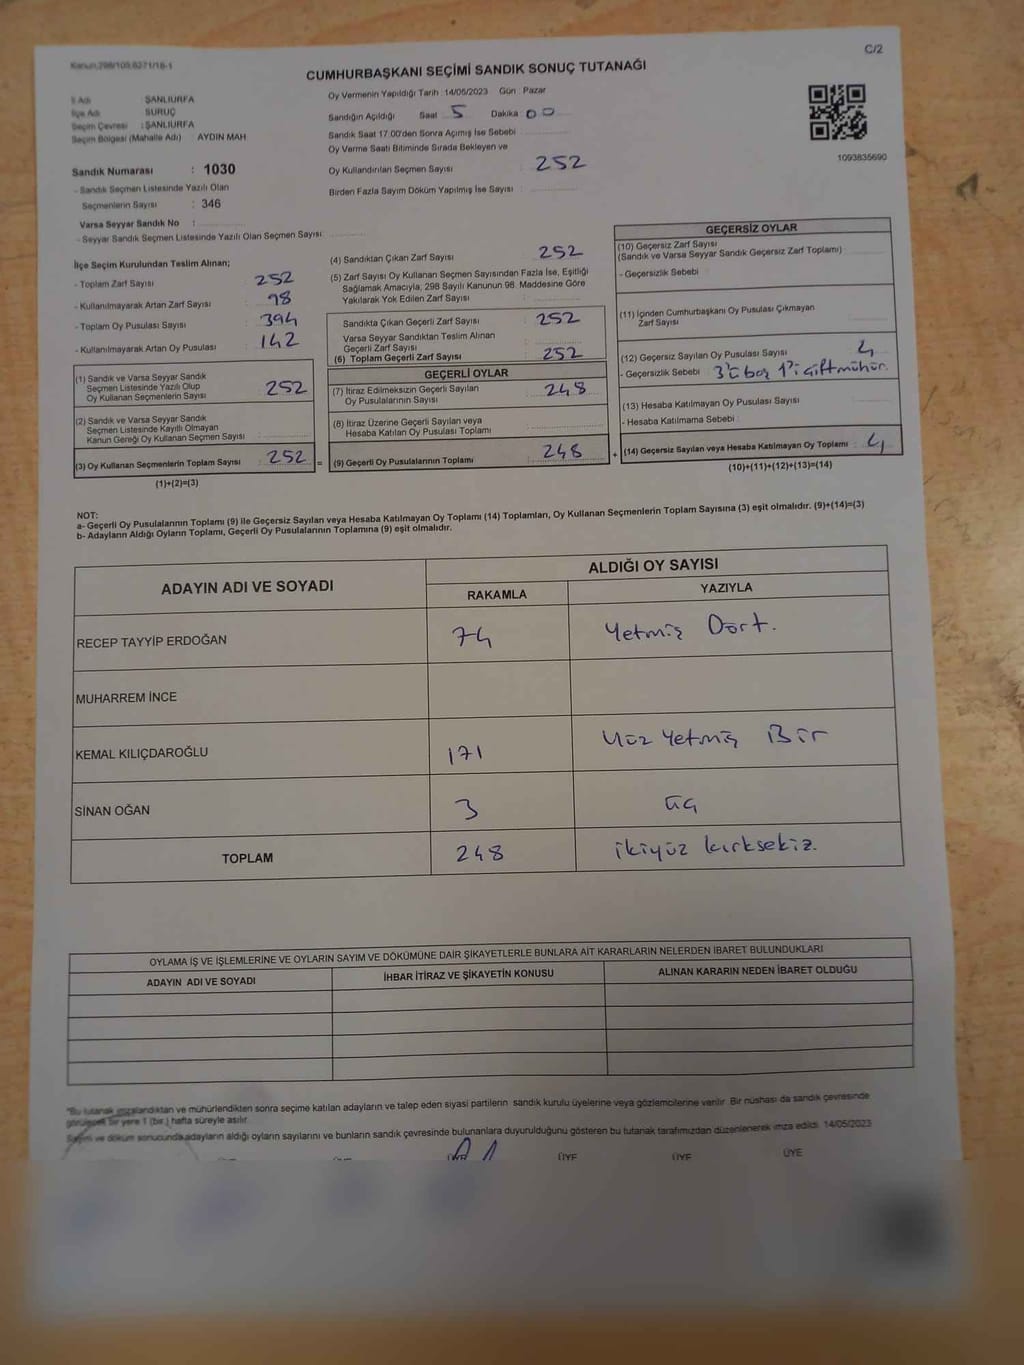 C/2
Kanun:298/109,6271/18-1
CUMHURBAŞKANI SEÇİMİ SANDIK SONUÇ TUTANAĞI
İl Adı : ŞANLIURFA
İlçe Adı : SURUÇ
Seçim Çevresi : ŞANLIURFA
Seçim Bölgesi (Mahalle Adı) : AYDIN MAH
Sandık Numarası : 1030
- Sandık Seçmen Listesinde Yazılı Olan
Seçmenlerin Sayısı : 346
Varsa Seyyar Sandık No :
- Seyyar Sandık Seçmen Listesinde Yazılı Olan Seçmen Sayısı:
Oy Vermenin Yapıldığı Tarih :14/05/2023 Gün : Pazar
Sandığın Açıldığı Saat 5 Dakika 00
Sandık Saat 17:00'den Sonra Açımış İse Sebebi
Oy Verme Saati Bitiminde Sırada Bekleyen ve
Oy Kullandırılan Seçmen Sayısı : 252
Birden Fazla Sayım Döküm Yapılmış İse Sayısı :
1093835690
İlçe Seçim Kurulundan Teslim Alınan;
- Toplam Zarf Sayısı : 252
- Kullanılmayarak Artan Zarf Sayısı : 98
- Toplam Oy Pusulası Sayısı : 394
- Kullanılmayarak Artan Oy Pusulası : 142
(1) Sandık ve Varsa Seyyar Sandık
Seçmen Listesinde Yazılı Olup
Oy Kullanan Seçmenlerin Sayısı : 252
(2) Sandık ve Varsa Seyyar Sandık
Seçmen Listesinde Kayıtlı Olmayan
Kanun Gereği Oy Kullanan Seçmen Sayısı :
(3) Oy Kullanan Seçmenlerin Toplam Sayısı : 252 =
(1)+(2)=(3)
(4) Sandıktan Çıkan Zarf Sayısı : 252
(5) Zarf Sayısı Oy Kullanan Seçmen Sayısından Fazla İse, Eşitliği
Sağlamak Amacıyla, 298 Sayılı Kanunun 98. Maddesine Göre
Yakılarak Yok Edilen Zarf Sayısı :
Sandıkta Çıkan Geçerli Zarf Sayısı : 252
Varsa Seyyar Sandıktan Teslim Alınan
Geçerli Zarf Sayısı :
(6) Toplam Geçerli Zarf Sayısı : 252
GEÇERLİ OYLAR
(7) İtiraz Edilmeksizin Geçerli Sayılan
Oy Pusulalarının Sayısı : 248
(8) İtiraz Üzerine Geçerli Sayılan veya
Hesaba Katılan Oy Pusulası Toplamı :
(9) Geçerli Oy Pusulalarının Toplamı : 248 +
GEÇERSİZ OYLAR
(10) Geçersiz Zarf Sayısı
(Sandık ve Varsa Seyyar Sandık Geçersiz Zarf Toplamı)
- Geçersizlik Sebebi
(11) İçinden Cumhurbaşkanı Oy Pusulası Çıkmayan
Zarf Sayısı
(12) Geçersiz Sayılan Oy Pusulası Sayısı : 4
- Geçersizlik Sebebi 3'ü boş 1'i çift mühür.
(13) Hesaba Katılmayan Oy Pusulası Sayısı
- Hesaba Katılmama Sebebi
(14) Geçersiz Sayılan veya Hesaba Katılmayan Oy Toplamı : 4
(10)+(11)+(12)+(13)=(14)
NOT:
a- Geçerli Oy Pusulalarının Toplamı (9) ile Geçersiz Sayılan veya Hesaba Katılmayan Oy Toplamı (14) Toplamları, Oy Kullanan Seçmenlerin Toplam Sayısına (3) eşit olmalıdır. (9)+(14)=(3)
b- Adayların Aldığı Oyların Toplamı, Geçerli Oy Pusulalarının Toplamına (9) eşit olmalıdır.
ADAYIN ADI VE SOYADI
ALDIĞI OY SAYISI
RAKAMLA YAZIYLA
RECEP TAYYİP ERDOĞAN 74 Yetmiş Dört.
MUHARREM İNCE
KEMAL KILIÇDAROĞLU 171 Yüz Yetmiş Bir
SİNAN OĞAN 3 üç
TOPLAM 248 ikiyüz kırksekiz.
OYLAMA İŞ VE İŞLEMLERİNE VE OYLARIN SAYIM VE DÖKÜMÜNE DAİR ŞİKAYETLERLE BUNLARA AİT KARARLARIN NELERDEN İBARET BULUNDUKLARI
ADAYIN ADI VE SOYADI İHBAR İTİRAZ VE ŞİKAYETİN KONUSU ALINAN KARARIN NEDEN İBARET OLDUĞU
*Bu tutanak imzalandıktan ve mühürlendikten sonra seçime katılan adayların ve talep eden siyasi partilerin sandık kurulu üyelerine veya gözlemcilerine verilir. Bir nüshası da sandık çevresinde
görülecek bir yere 1 (bir) hafta süreyle asılır.
Sayım ve döküm sonucunda adayların aldığı oyların sayılarını ve bunların sandık çevresinde bulunanlara duyurulduğunu gösteren bu tutanak tarafımızdan düzenlenerek imza edildi. 14/05/2023
ÜYE ÜYE ÜYE